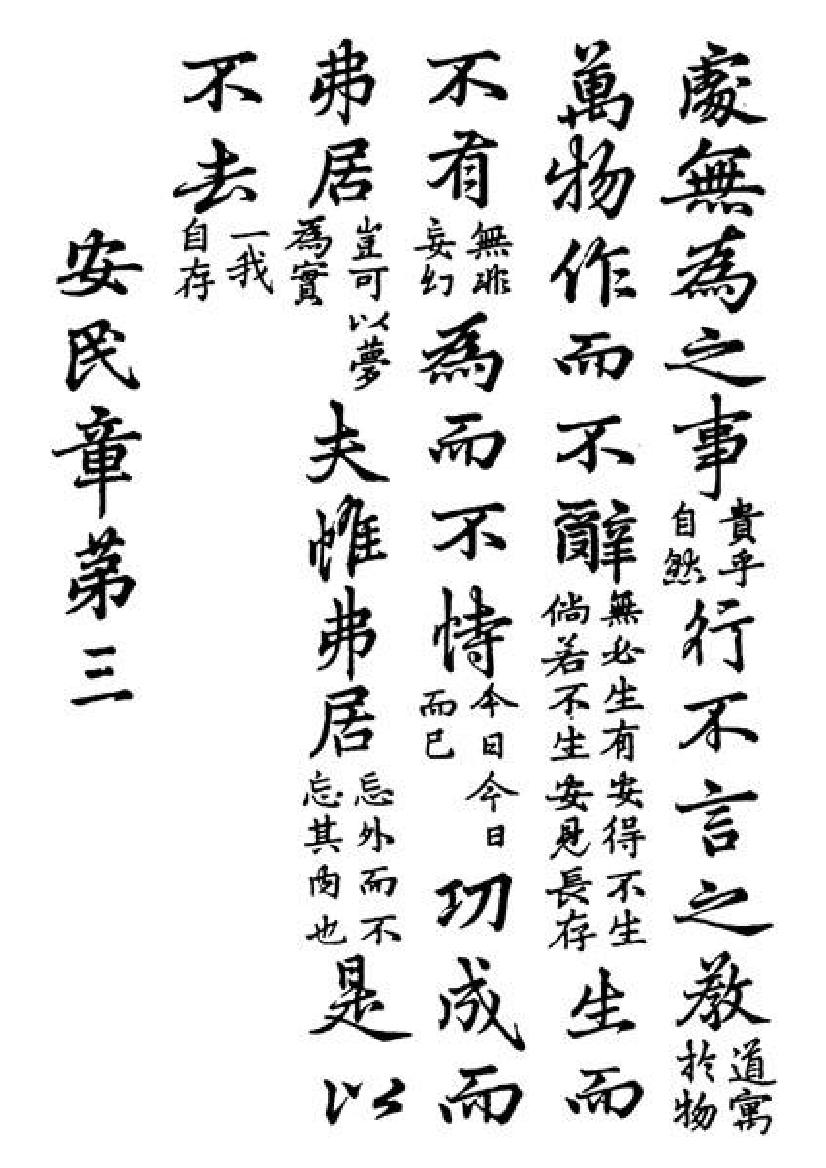 處無為之事貴乎自然行不言之教道寓於物
萬物作而不辭無必生有安得不生倘若不生安見長存生而
不有無非妄幻為而不恃今日今日而已功成而
弗居豈可以夢為實夫惟弗居忘外而不忘其內也是以
不去一我自存
安民章第三